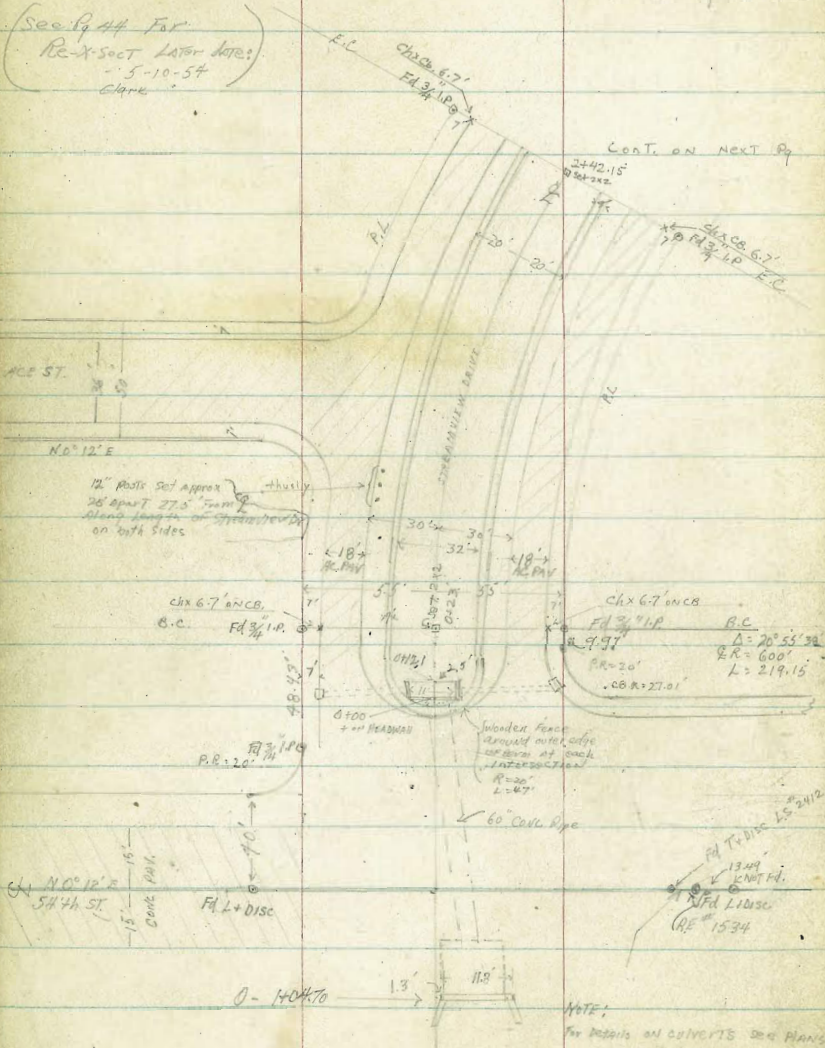 (See Pg 44 For
Re-X-Sect Later date:
- 5-10-54
Clark
E.C
Chx CB. 6.7'
Fd 3/4" I.P
7'
Cont. on Next Pg
2+42.15
Set 2x2
℄
Chx CB. 6.7'
Fd 3/4" I.P
7'
E.C
P.L
20'
20'
ACE ST.
36'
50'
STREAMVIEW DRIVE
P.L
N 0° 12' E
12" Posts Set Approx
28' Apart 27.5' From ℄
Along Length of Streamview Dr
on both Sides
thusly
30'
30'
32'
18'
AC. PAV
18'
AC. PAV
55'
55'
7'
7'
Set 2x2
0+23
Chx 6.7' on CB.
B.C. Fd 3/4" I.P.
Chx 6.7' on CB
Fd 3/4" I.P
B.C
9.97'
Δ = 20° 55' 39
℄ R = 600'
L = 219.15
P.R = 20'
CB R = 27.01'
48.43'
7'
2.5'
0+00
HEADWALL
Wooden Fence
around outer edge
at each
intersection
R = 20'
L = 47'
Fd 3/4" I.P
P.R = 20'
60" Conc Pipe
70'
N 0° 12' E
54th ST.
15'
15'
CONC PAV.
Fd L + DISC
Fd T + DISC LS 2412
13.49'
NOT Fd.
Fd L + DISC
RE 1534
0 - 1+04.70
1.3'
11.8'
NOTE:
For Details on culverts see Plans